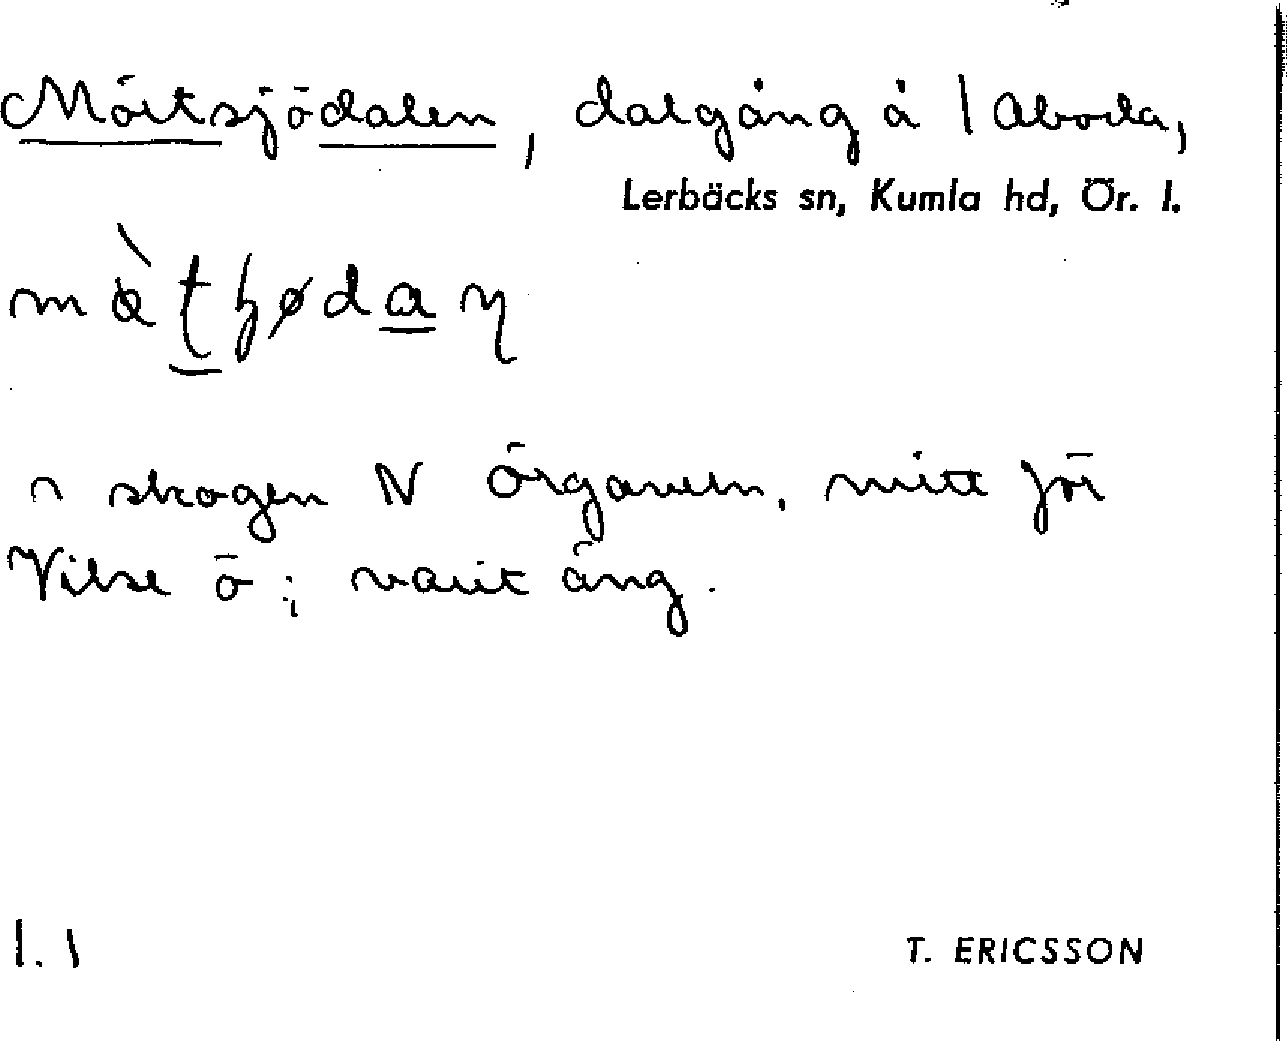 Mörtsjödalen, dalgång å 1 Aboda,
Lerbäcks sn, Kumla hd, Ör. l.
i skogen N Örgaveln, mitt för
Vilse ö; varit äng.
1.1
T. ERICSSON